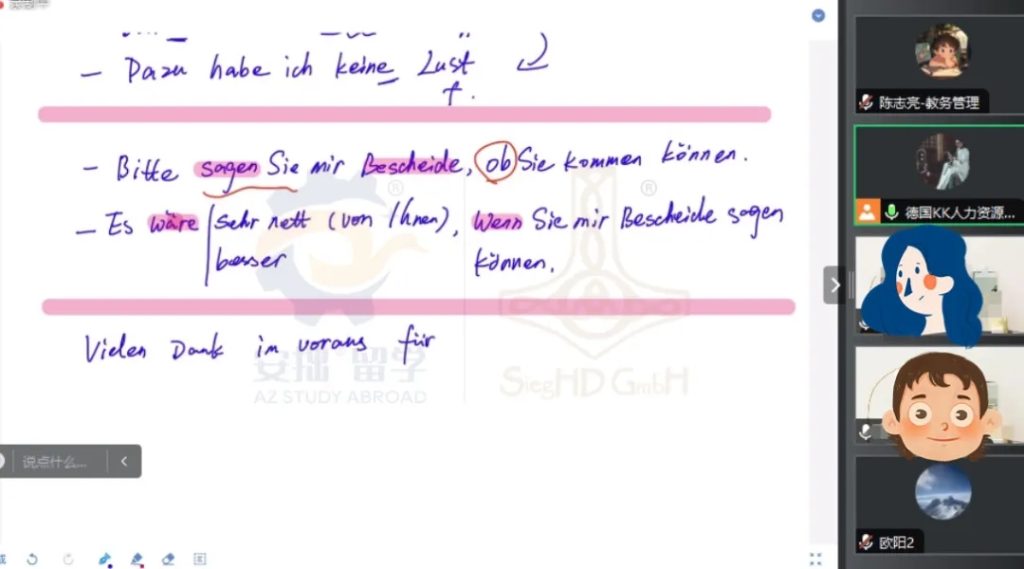 - Dazu habe ich keine Lust
f.
- Bitte sagen Sie mir Bescheide, ob Sie kommen können.
- Es wäre sehr nett (von Ihnen), wenn Sie mir Bescheide sagen
besser können.
Vielen Dank im voraus für
安拙 留学
AZ STUDY ABROAD
SiegHD GmbH
®
®
说点什么...
陈志亮-教务管理
德国KK人力资源...
欧阳2